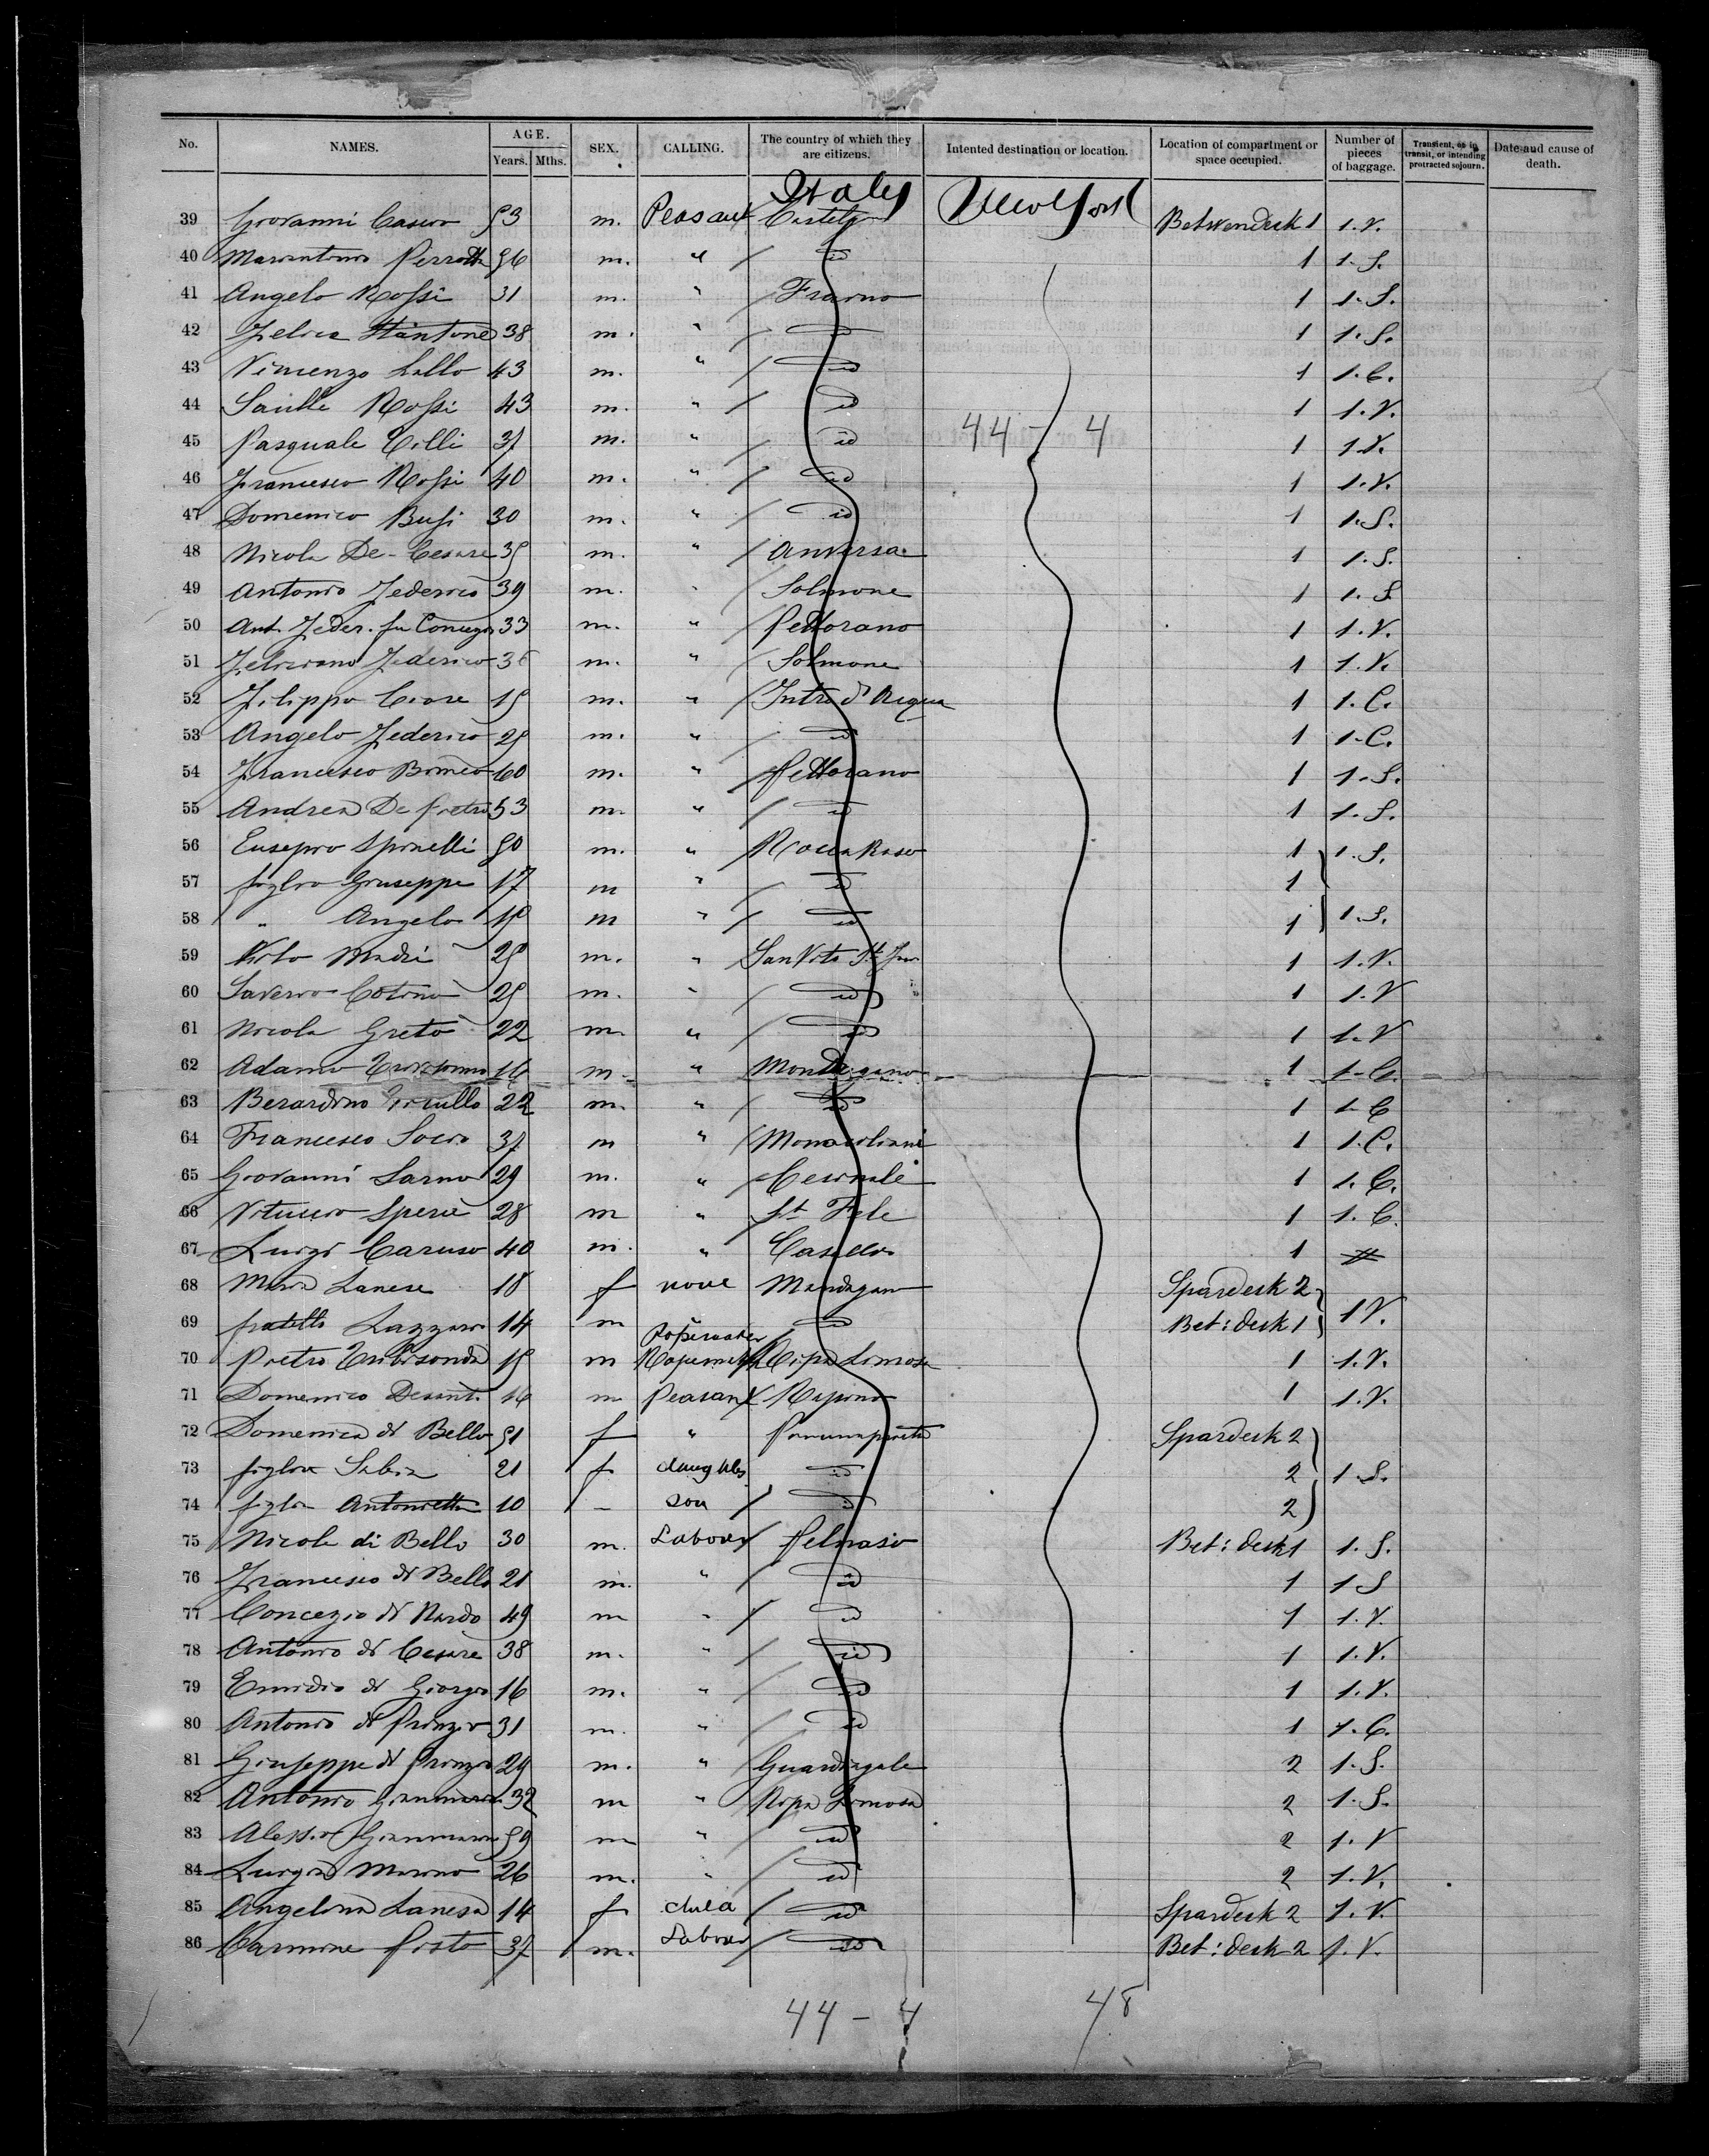 No. NAMES. AGE. Years. Mths. SEX. CALLING. The country of which they are citizens. Intented destination or location. Location of compartment or space occupied. Number of pieces of baggage. Transient, or in transit, or intending protracted sojourn. Date and cause of death.
Italy
39 Giovanni Casero 53 m. Peasant Betwendeck 1 1.V.
40 Perrotta 56 m. " id 1 1.S.
41 Angelo Rossi 31 m. " 1 1.S.
42 Felice 38 m. " id 1 1.S.
43 Vincenzo Lallo 43 m. " id 1 1.C.
44 Rossi 43 m. " id 1 1.V.
45 Pasquale Cilli 37 m. " id 1 1.V.
44 - 4
46 Francesco Rossi 40 m. " id 1 1.V.
47 Domenico Busi 30 m. " id 1 1.S.
48 Nicola De-Cesare 35 m. " Anversa 1 1.S.
49 Antonio Federico 39 m. " Solmone 1 1.S
50 Ant. Feder. fu 33 m. " Pettorano 1 1.V.
51 Feliciano Federico m. " Solmone 1 1.V.
52 Filippo Ciore 15 m. " Intro d'Acqua 1 1.C.
53 Angelo Federico 25 m. " id 1 1-C.
54 Francesco 60 m. " Pettorano 1 1.S.
55 Andrea De Pietro 53 m. " id 1 1.S.
56 Eusepio Spinelli 50 m. " Rocca Raso 1 1.S.
57 figlio Giuseppe 17 m " id 1
58 " Angelo m " id 1 1.S.
59 Vito 25 m. " San Vito 1 1.V.
60 Saverio Cotino 25 m. " id 1 1.V
61 Nicola Greto 22 m. " id 1 1.V
62 Adamo 16 m. " 1
63 Berardino 22 m. " id 1 1-C
64 Francesco Socio 37 m " 1 1.C.
65 Giovanni Sarno 29 m. " Cesinale 1 1.C.
66 28 m " St Fele 1 1.C.
67 Luigi Caruso 40 m. " 1
68 Maria Lanese 18 f none Spardeck 2
69 fratello Lazzaro 14 m id Bet: deck 1 1V.
70 Pietro 15 m Ripa Limosa 1 1.V.
71 Domenico 16 m Peasant 1 1.V.
72 Domenica di Bello 51 f " Spardeck 2
73 figlia 21 f. daughter id 2 1.S.
74 figlia Antonietta 10 - son id 2
75 Nicola di Bello 30 m. Labour Bet: deck 1 1.S.
76 Francesco di Bello 21 m. " id 1 1 S
77 Concezio di Nardo 49 m " id 1 1.V.
78 Antonio di Cesare 38 m. " id 1 1.V.
79 Emidio di Giorgio 16 m. " id 1 1.V.
80 Antonio di Prinzio 31 m. " id 1 1.C.
81 Giuseppe di Prinzio 29 m. " 2 1.S.
82 Antonio 32 m " Ripa Limosa 2 1.S.
83 59 m " id 2 1.V
84 26 m. " id 2 1.V.
85 Angelina Lanesa 14 f child id Spardeck 2 1.V.
86 Carmine Pisto 37 m. Labour id Bet: deck 2 1.V.
44 - 4 48